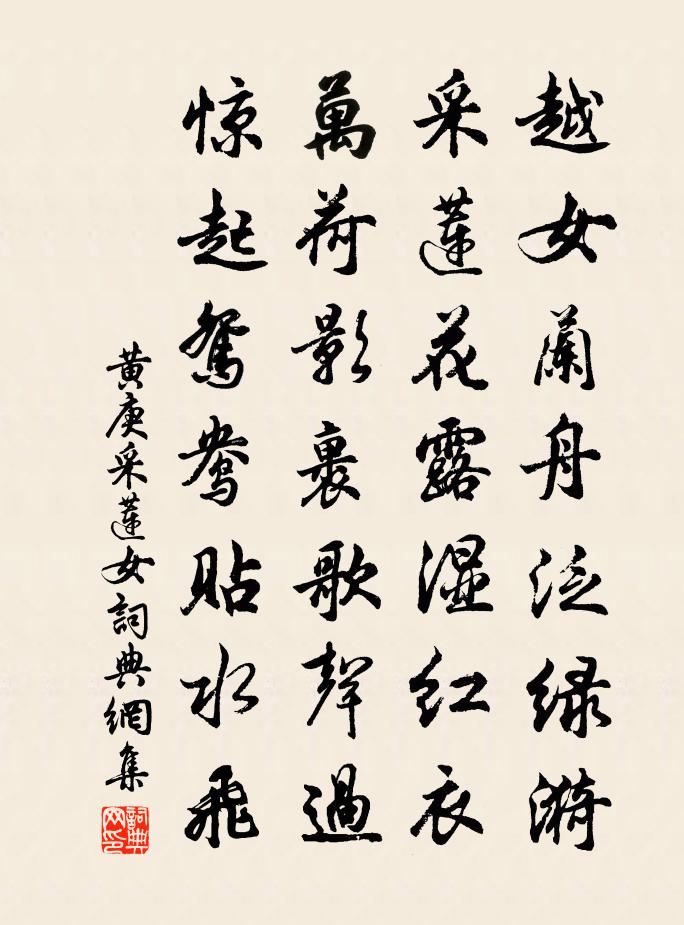 越女蘭舟泛绿漪
采蓮花露湿红衣
萬荷影裏歌聲過
惊起鸳鸯貼水飛
黄庚采蓮女詞典網集
詞典网印